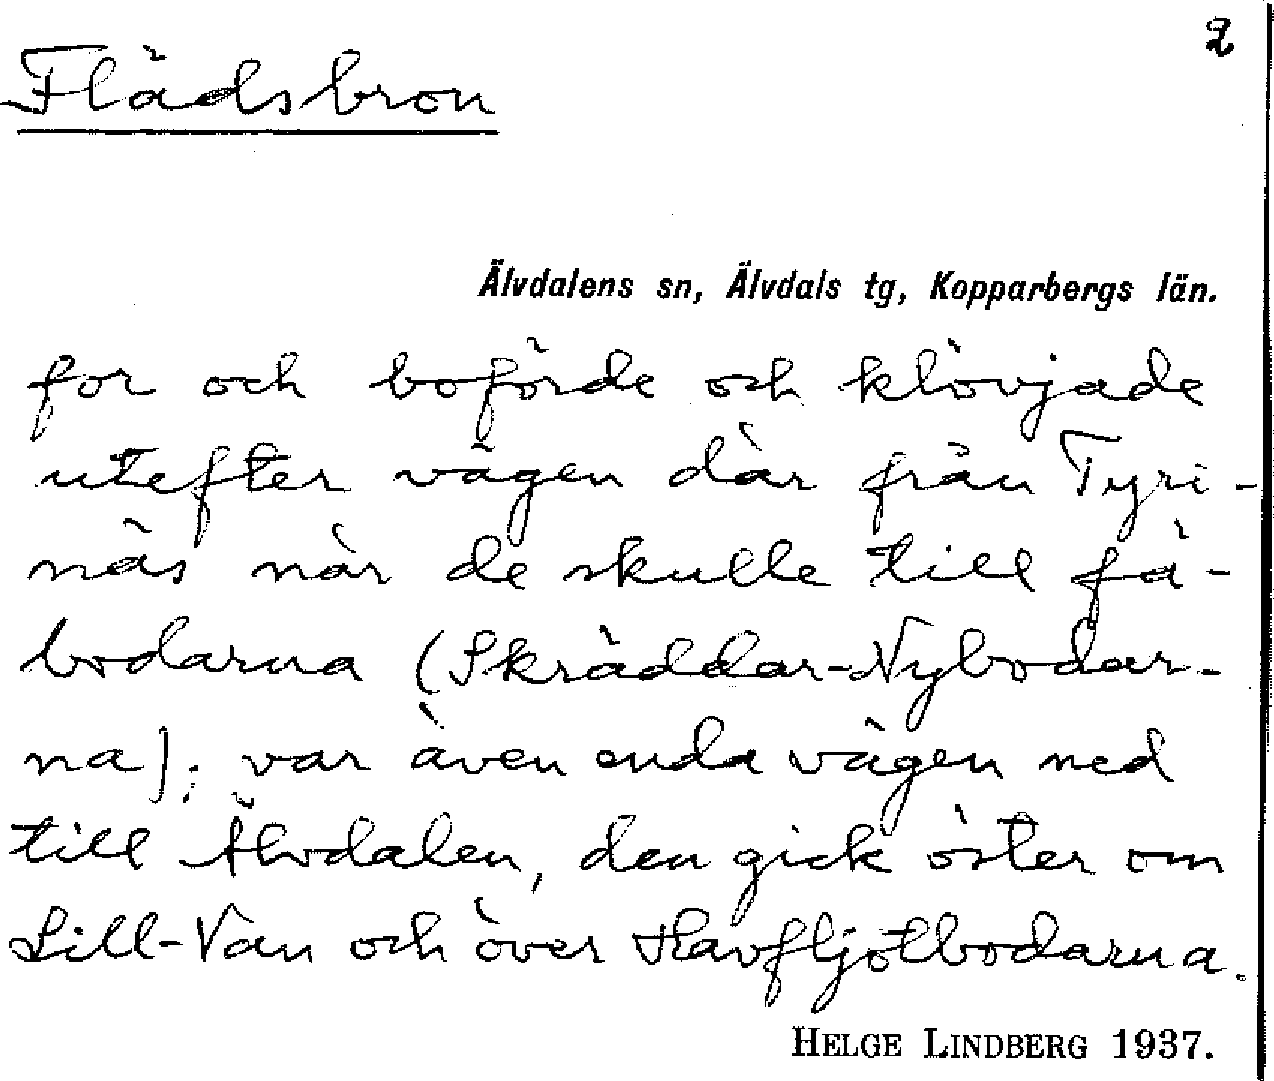 2
Flädsbron
Älvdalens sn, Älvdals tg, Kopparbergs län.
for och boförde och klövjade
utefter vägen där från Tyri-
näs när de skulle till fä-
bodarna (Skräddar-Nybodar-
na); var även enda vägen ned
till Älvdalen, den gick öster om
Lill-Van och över Havfljötbodarna.
HELGE LINDBERG 1937.